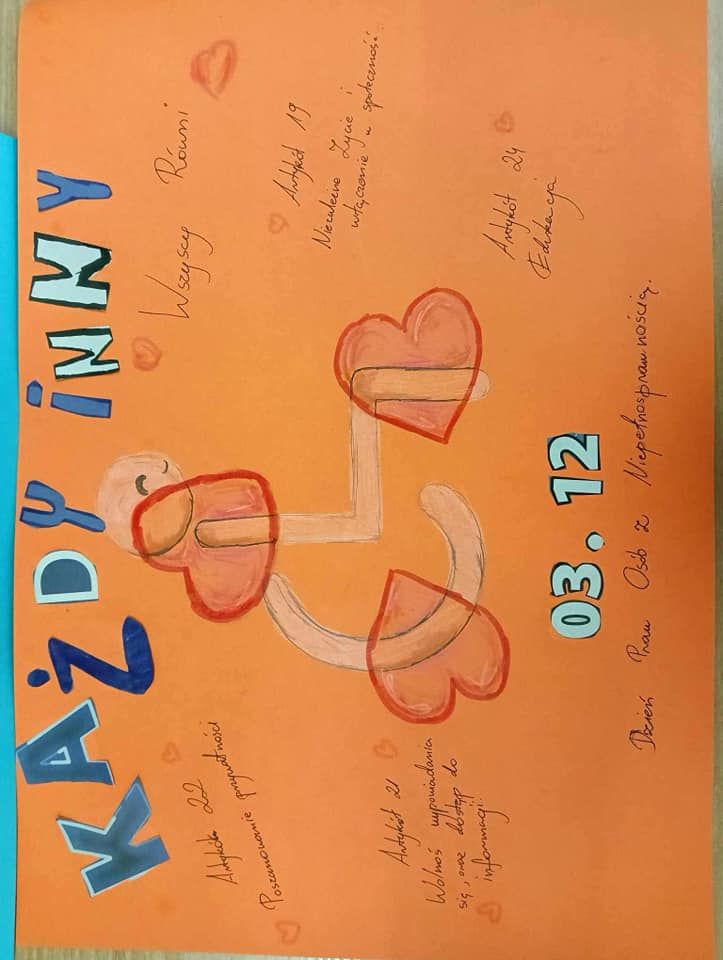 KAŻDY iNNY
Wszyscy Równi
Artykół 22
Poszanowanie prywatności
Artykół 19
Niezależne Życie i
włączenie w społeczność
Artykół 21
Wolnoś wypowiadania
się, oraz dostęp do
informacji
Artykół 24
Edukacja
03.12
Dzień Praw Osób z Niepełnosprawnością.